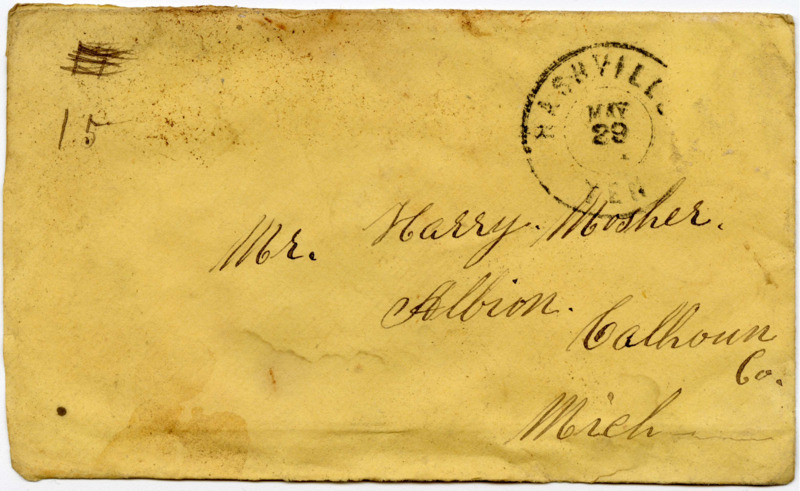 15
NASHVILL
MAY
29
TEN
Mr. Harry. Mosher.
Albion.
Calhoun
Co.
Mich